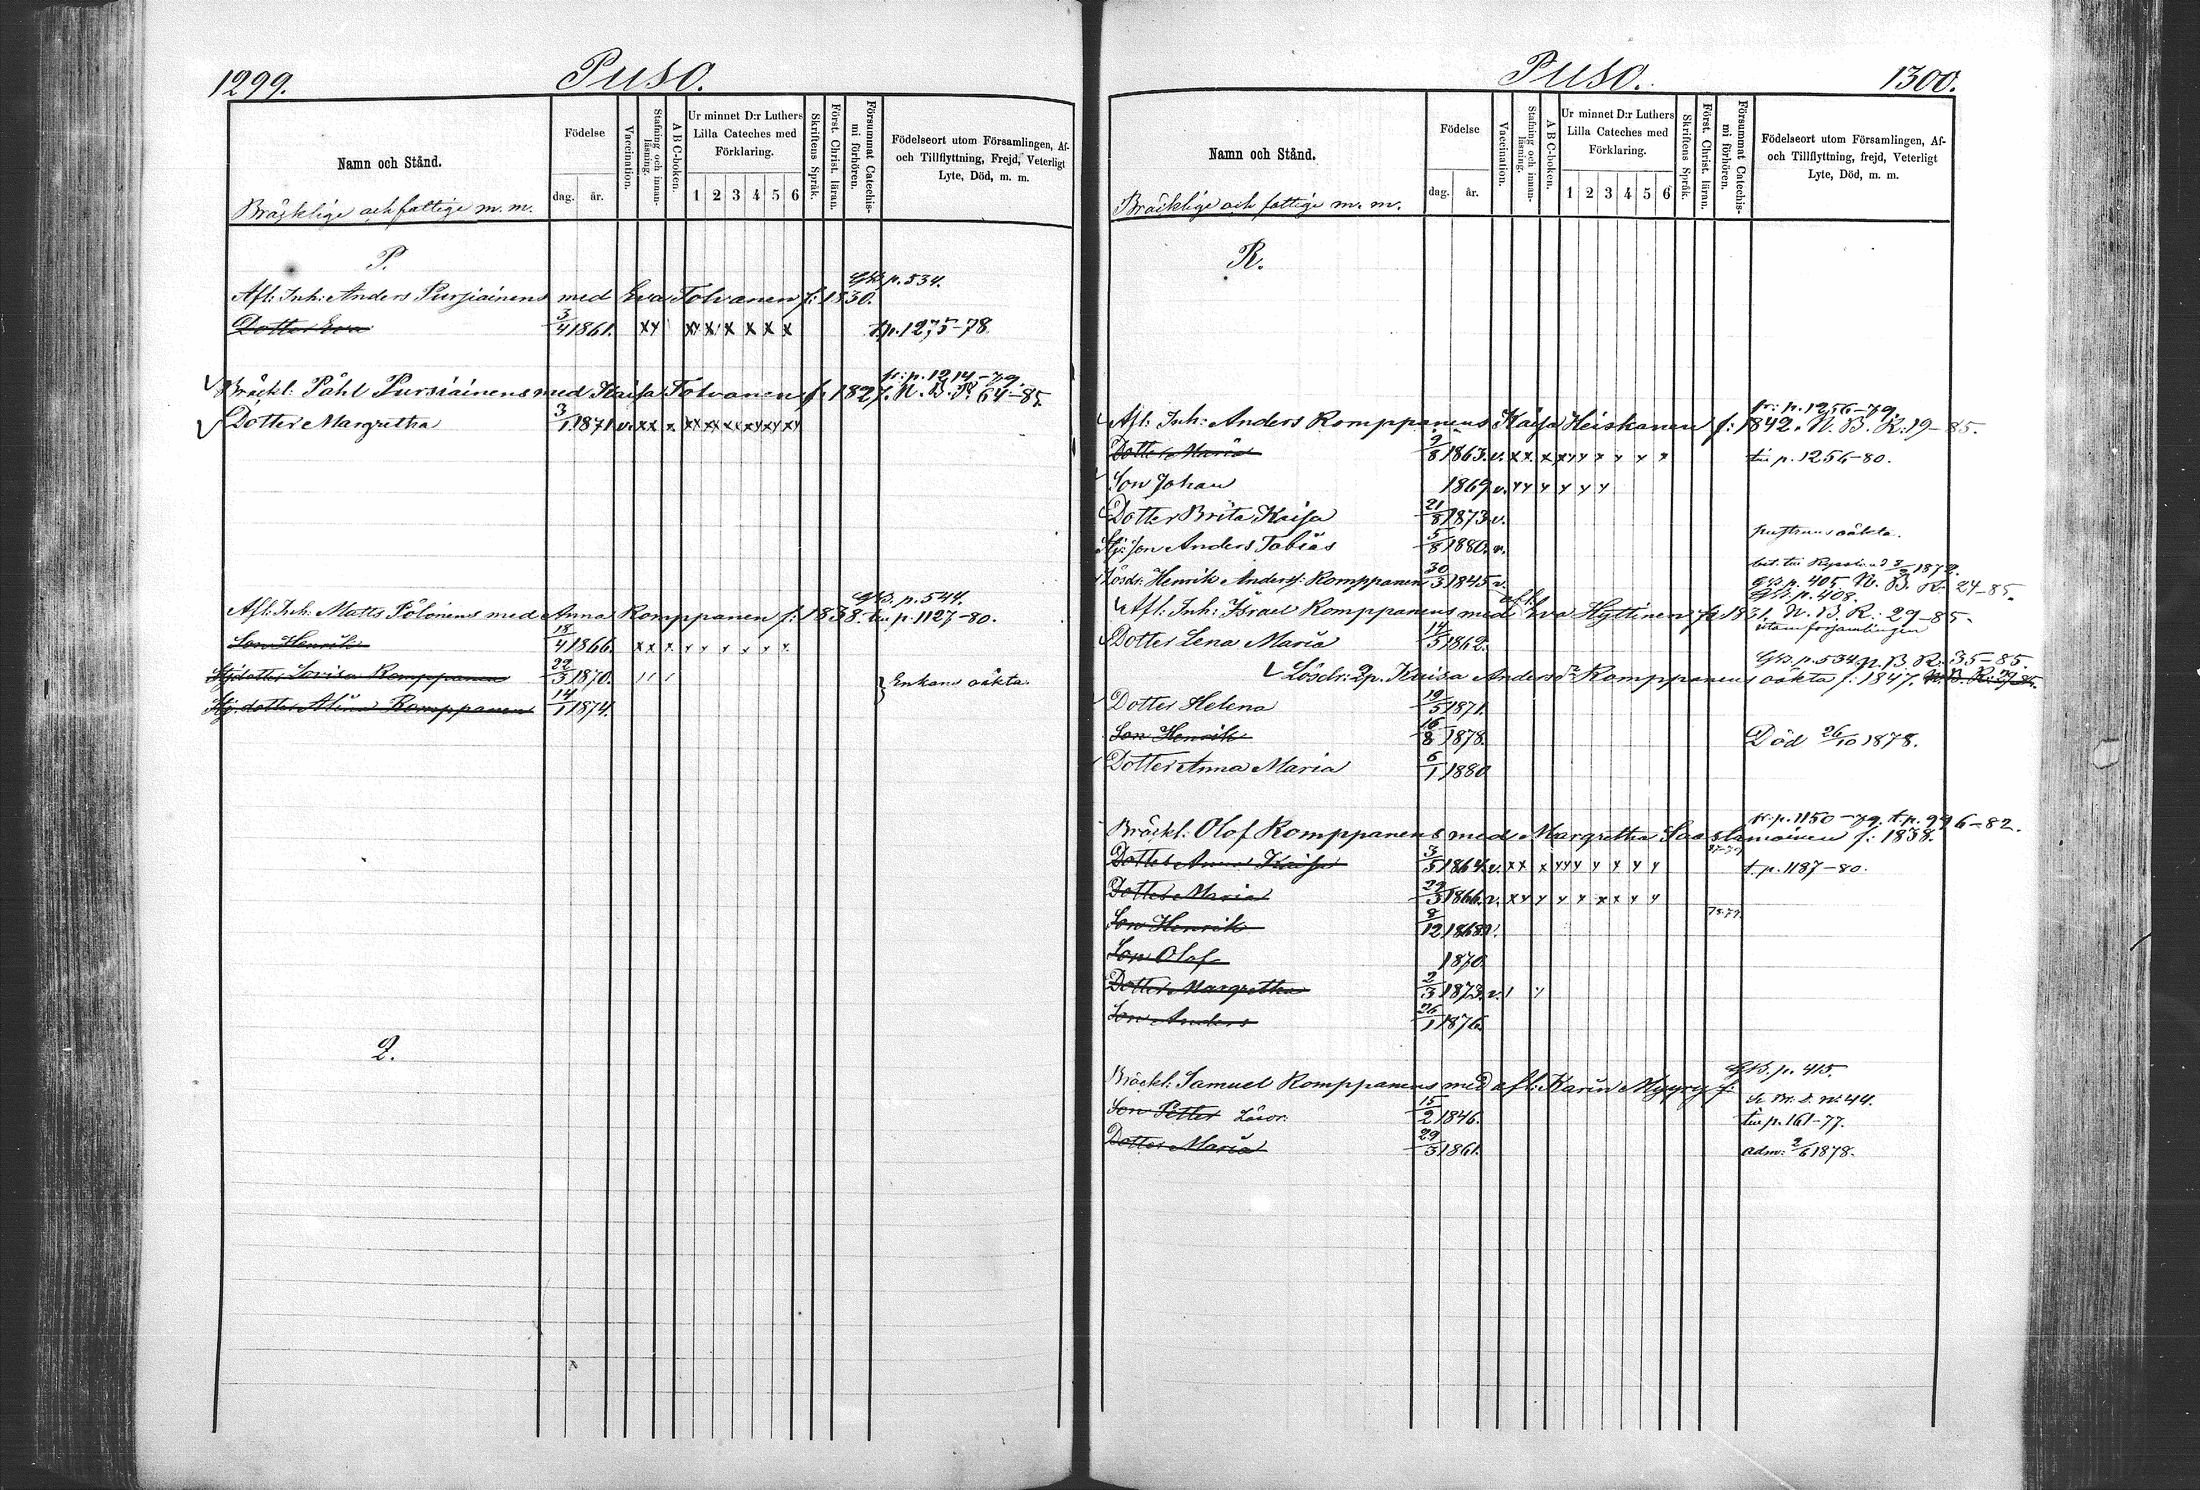 1299.
Puso.
Namn och Stånd.
Bräcklige och fattige m. m.
Födelse
dag. år.
Vaccination.
Stafning och innanläsning.
A B C-boken.
Ur minnet D:r Luthers Lilla Cateches med Förklaring.
1 2 3 4 5 6
Skriftens Språk.
Först. Christ. läran.
Försummat Catechismi förhören.
Födelseort utom Församlingen, Af- och Tillflyttning, Frejd, Veterligt Lyte, Död, m. m.
P.
p. 534.
Afl: Inh: Anders Pursiainens med Eva Tolvanen f: 1830.
Dotter Eva 3/4 1861. t. p. 1275-78
fr: p. 1214-79.
Bräckl: Påhl Pursiainens med Kaisa Tolvanen f: 1827. N. B. P. 64-85.
Dotter Margretha 3/1 1871 v.
p. 544.
Afl: Inh: Matts Pölönens med Anna Romppanen f: 1838. till p. 1127-80.
Son Henrik 18/4 1866.
Stj: dotter Lovisa Romppanen 22/3 1870. Enkans oäkta
Stj: dotter Alina Romppanen 14/1 1874.
Q.
Puso.
1300.
Namn och Stånd.
Bräcklige och fattige m. m.
Födelse
dag. år.
Vaccination.
Stafning och innanläsning.
A B C-boken.
Ur minnet D:r Luthers Lilla Cateches med Förklaring.
1 2 3 4 5 6
Skriftens Språk.
Först. Christ. läran.
Försummat Catechismi förhören.
Födelseort utom Församlingen, Af- och Tillflyttning, frejd, Veterligt Lyte, Död, m. m.
R.
fr: p. 1256-79.
Afl: Inh: Anders Romppanens Kaisa Heiskanen f: 1842. N. B. R: 19-85.
Dotter Maria 9/8 1863. v. till p. 1256-80.
Son Johan 1869 v.
Dotter Brita Kaisa 21/8 1873 v.
Stj: son Anders Tobias 5/8 1880. v. oäkta.
Lösdr: Henrik Anders: Romppanen 30/3 1845 v. p. 405 N. B. R. 24-85.
p. 408.
Afl: Inh: Israel Romppanens med afl: Eva Hyttinen f: 1831. N. B. R: 29-85.
Dotter Lena Maria 14/3 1862. utom församlingen
p. 534 N. B. R: 35-85.
Lösdr: Qp. Kaisa Andersdr Romppanens oäkta f: 1847.
Dotter Helena 19/5 1871.
Son Henrik 16/8 1878. Död 26/10 1878.
Dotter Anna Maria 6/1 1880
fr: p. 1150-79. t. p. 996-82.
Bräckl: Olof Romppanens med Margretha Saastamoinen f: 1838.
Dotter Anna Kaisa 3/5 1864. v. t. p. 1187-80.
Dotter Maria 22/3 1866. v.
Son Henrik 8/12 1868
Son Olof 1870.
Dotter Margretha 2/3 1873. v.
Son Anders 26/1 1876.
p. 415.
Bräckl: Samuel Romppanens med afl: Karin Myyry f:
Son Petter Lösdr. 15/2 1846. till p. 161-77.
Dotter Maria 29/3 1861. adm: 2/6 1878.